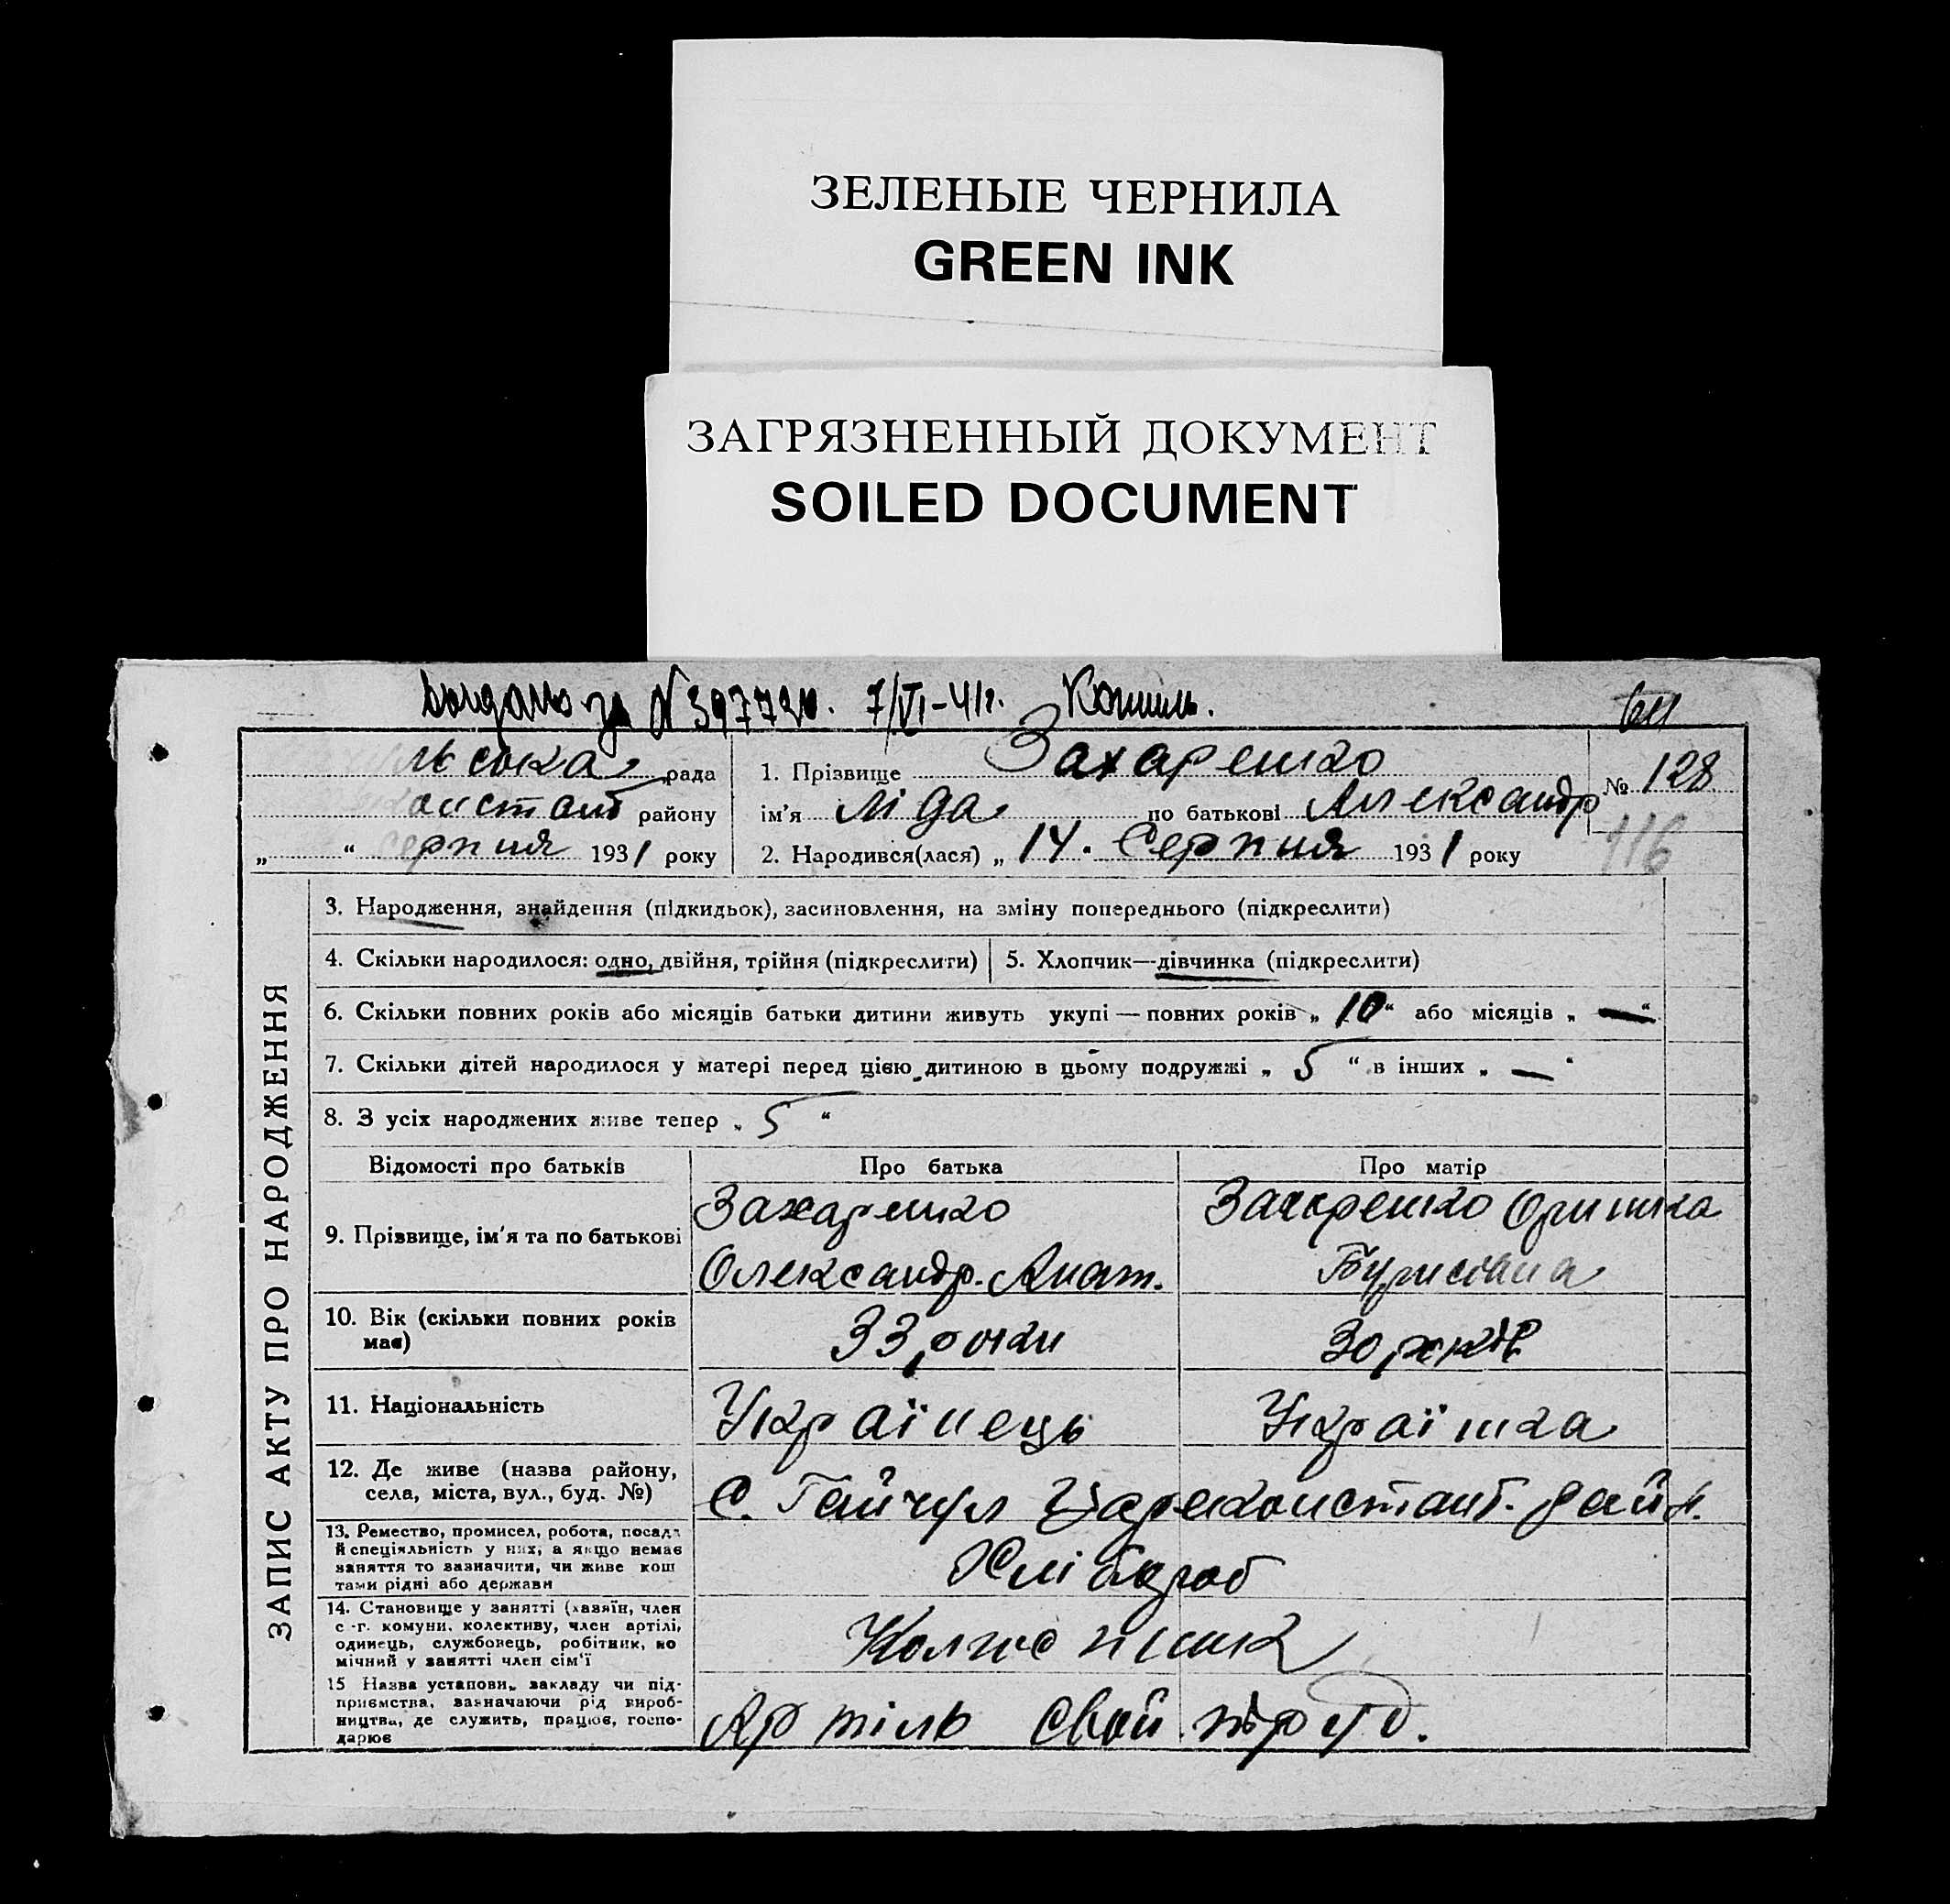 ЗЕЛЕНЫЕ ЧЕРНИЛА
GREEN INK
ЗАГРЯЗНЕННЫЙ ДОКУМЕНТ
SOILED DOCUMENT
за № 397720. 7/VI-41г.
ЗАПИС АКТУ ПРО НАРОДЖЕННЯ
льська рада
конст анб району
„ “ серпня 1931 року
1. Прізвище Захаренко
ім'я Ліда по батькові Александр
2. Народився(лася) „ 14. Серпня 1931 року
№ 128
116
3. Народження, знайдення (підкидьок), засиновлення, на зміну попереднього (підкреслити)
4. Скільки народилося: одно, двійня, трійня (підкреслити)
5. Хлопчик—дівчинка (підкреслити)
6. Скільки повних років або місяців батьки дитини живуть укупі — повних років „ 10 “ або місяців „ — “
7. Скільки дітей народилося у матері перед цією дитиною в цьому подружжі „ 5 “ в інших „ — “
8. З усіх народжених живе тепер „ 5 “
Відомості про батьків Про батька Про матір
9. Прізвище, ім'я та по батькові
Захаренко
Олександр. Анат.
Захаренко Оринка
10. Вік (скільки повних років має)
33 роки
30 років
11. Національність
Українець
Українка
12. Де живе (назва району, села, міста, вул., буд. №)
С. Гайчул Цареконстант. район.
13. Ремество, промисел, робота, посада
й спеціяльність у них, а якщо немає
заняття то зазначити, чи живе кош
тами рідні або держави
Хлібороб
14. Становище у занятті (хазяїн, член
с.-г. комуни, колективу, член артілі,
одинець, службовець, робітник, по
мічний у занятті член сім'ї
Колгоспник
15 Назва установи, закладу чи під-
приємства, зазначаючи рід вироб-
ництва, де служить, працює, госпо-
дарює
Артіль Свой труд.